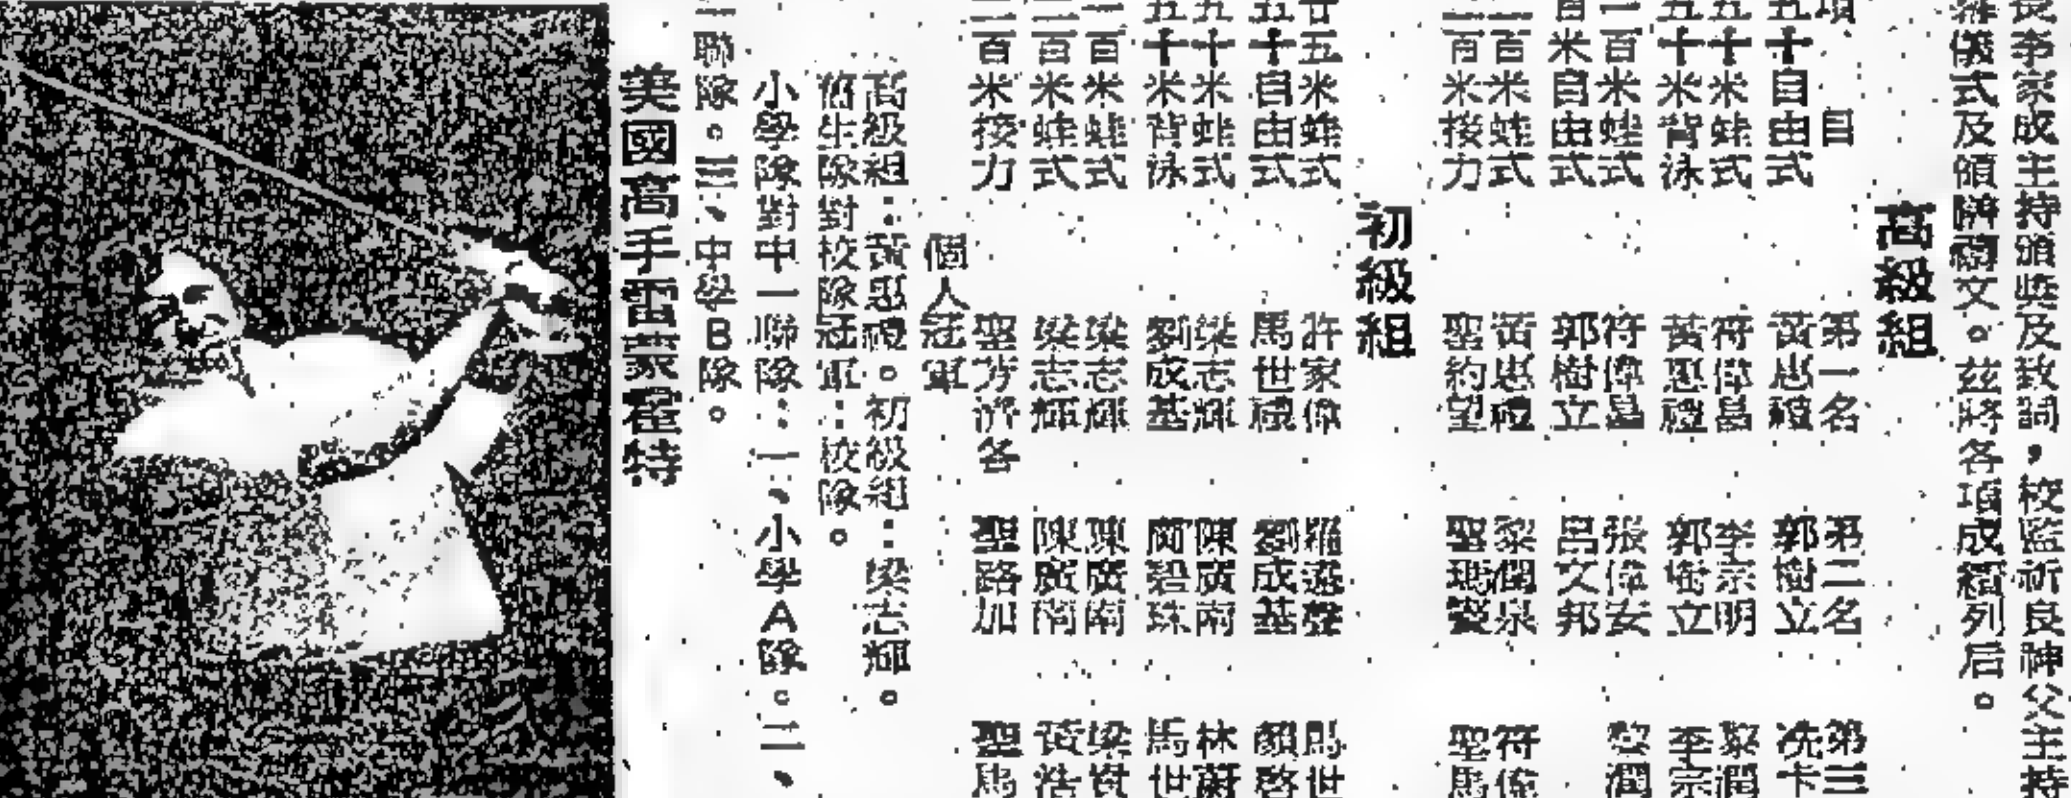 長李家成主持頒獎及致詞，校監祈良神父主持
儀式及領牌禱文。茲將各項成績列后。
高級組
項目 第一名 第二名 第三
五十自由式 黃惠禮 郭樹立 冼卡
五十米蛙式 符偉昌 李宗明 黎潤
五十米背泳 黃惠禮 郭樹立 李宗
一百米蛙式 符偉昌 張偉安 黎潤
百米自由式 郭樹立 呂文邦
二百米蛙式 黃惠禮 黎潤泉 符偉
二百米接力 聖約望 聖瑪竇 聖馬
初級組
廿五米蛙式 許家偉 羅遠聲 馬世
五十自由式 馬世禮 劉成基 顏啓
五十米蛙式 梁志輝 陳廣南 林蔚
五十米背泳 劉成基 碧珠 馬世
一百米蛙式 梁志輝 陳廣南 梁
二百米蛙式 梁志輝 陳廣南 黃浩
二百米接力 聖方濟各 聖路加 聖馬
個人冠軍
高級組：黃惠禮。初級組：梁志輝。
舊生隊對校隊冠軍：校隊。
小學隊對中一聯隊：一、小學A隊。二、
一聯隊。三、中學B隊。
美國高手雷蒙霍特